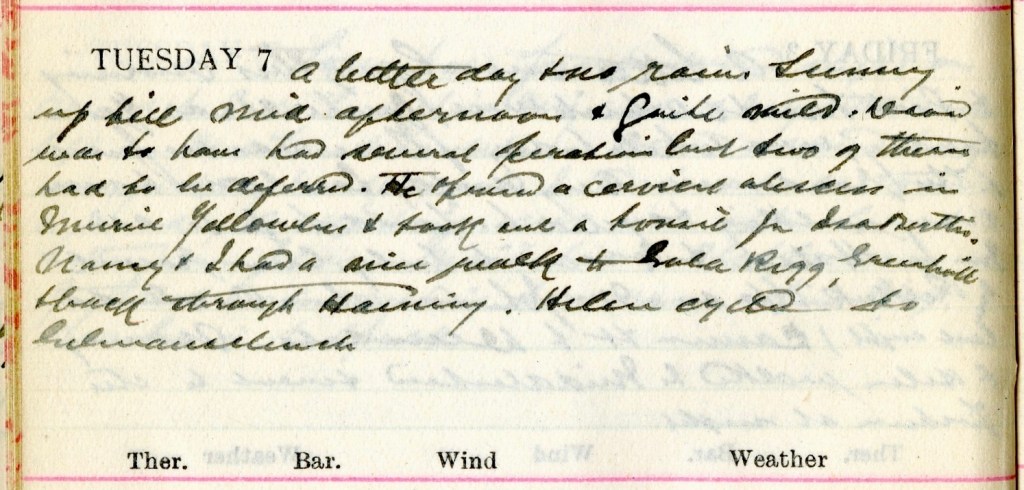 TUESDAY 7 A better day & no rain. Sunny
up till mid afternoon & quite mild.
was to have had several operations but two of them
had to be deferred. He opened a cervical abscess in
& took out a tonsil for
Nancy & I had a nice walk to Rigg, Greenhill
& back through Haining. Helen cycled to

Ther. Bar. Wind Weather